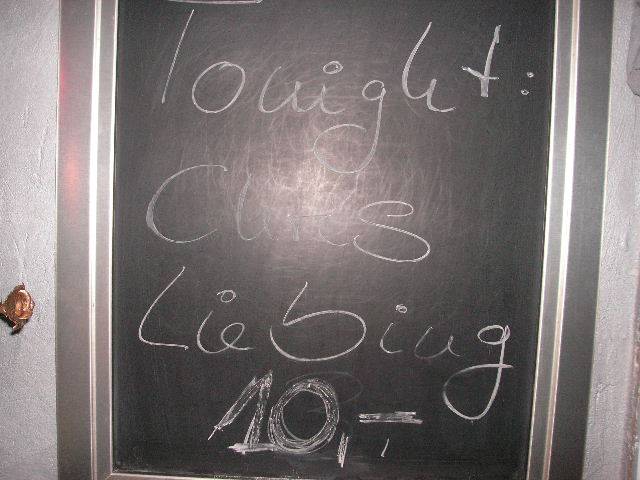 Tonight:
Chris
Liebing
10,-